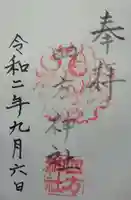 奉拝
四方神社
令和二年九月六日